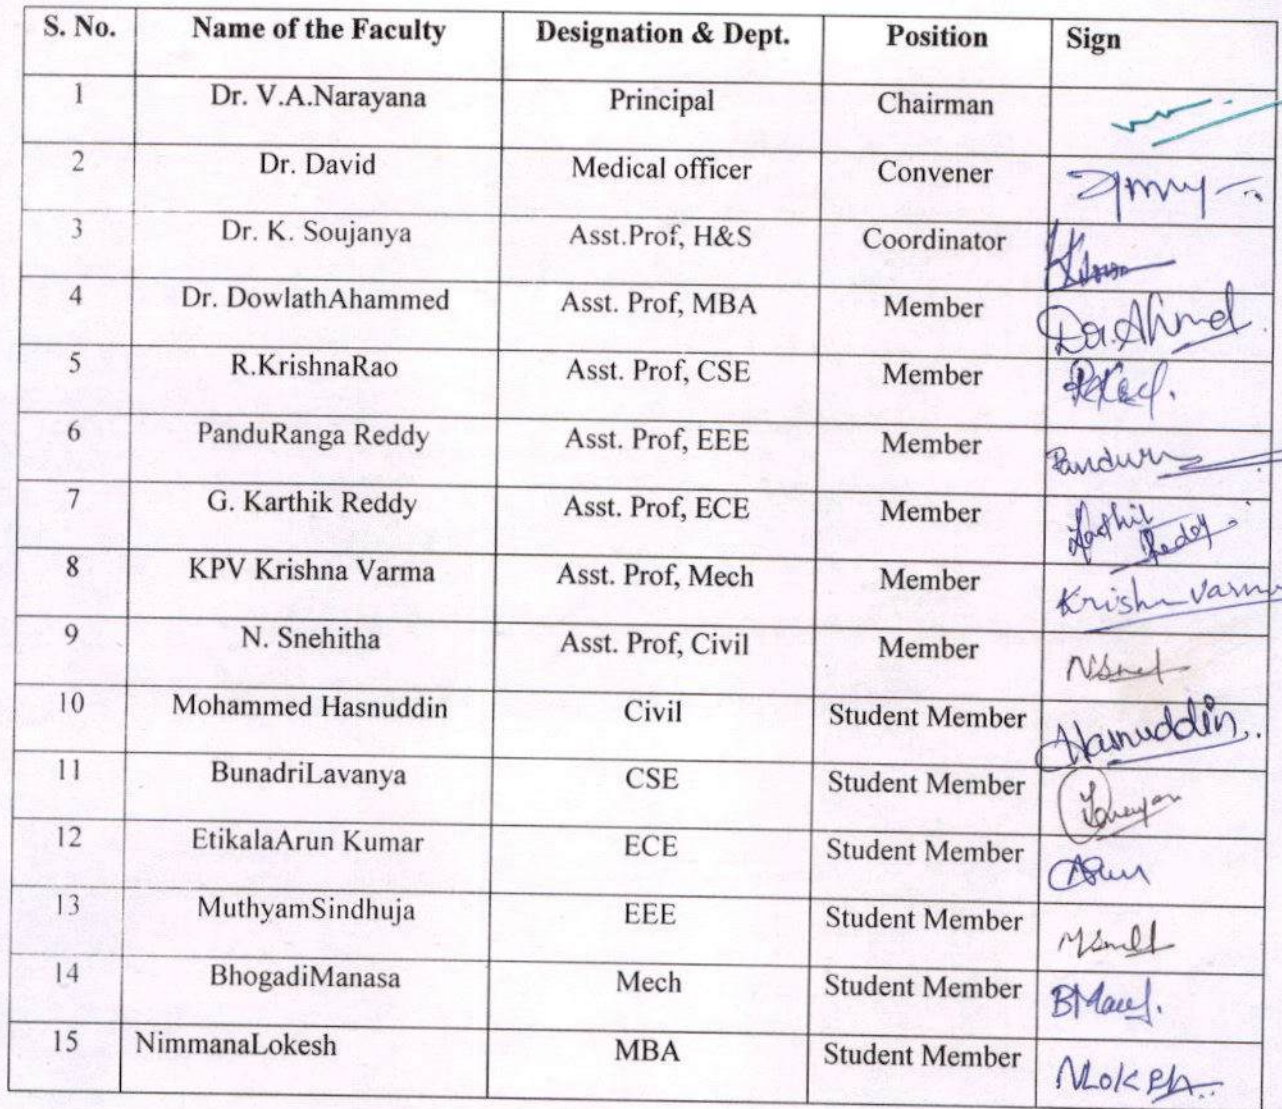 S. No. Name of the Faculty Designation & Dept. Position Sign
1 Dr. V.A.Narayana Principal Chairman
2 Dr. David Medical officer Convener
3 Dr. K. Soujanya Asst.Prof, H&S Coordinator
4 Dr. DowlathAhammed Asst. Prof, MBA Member
5 R.KrishnaRao Asst. Prof, CSE Member
6 PanduRanga Reddy Asst. Prof, EEE Member
7 G. Karthik Reddy Asst. Prof, ECE Member
8 KPV Krishna Varma Asst. Prof, Mech Member
9 N. Snehitha Asst. Prof, Civil Member
10 Mohammed Hasnuddin Civil Student Member Hasnuddin
11 BunadriLavanya CSE Student Member
12 EtikalaArun Kumar ECE Student Member
13 MuthyamSindhuja EEE Student Member
14 BhogadiManasa Mech Student Member
15 NimmanaLokesh MBA Student Member